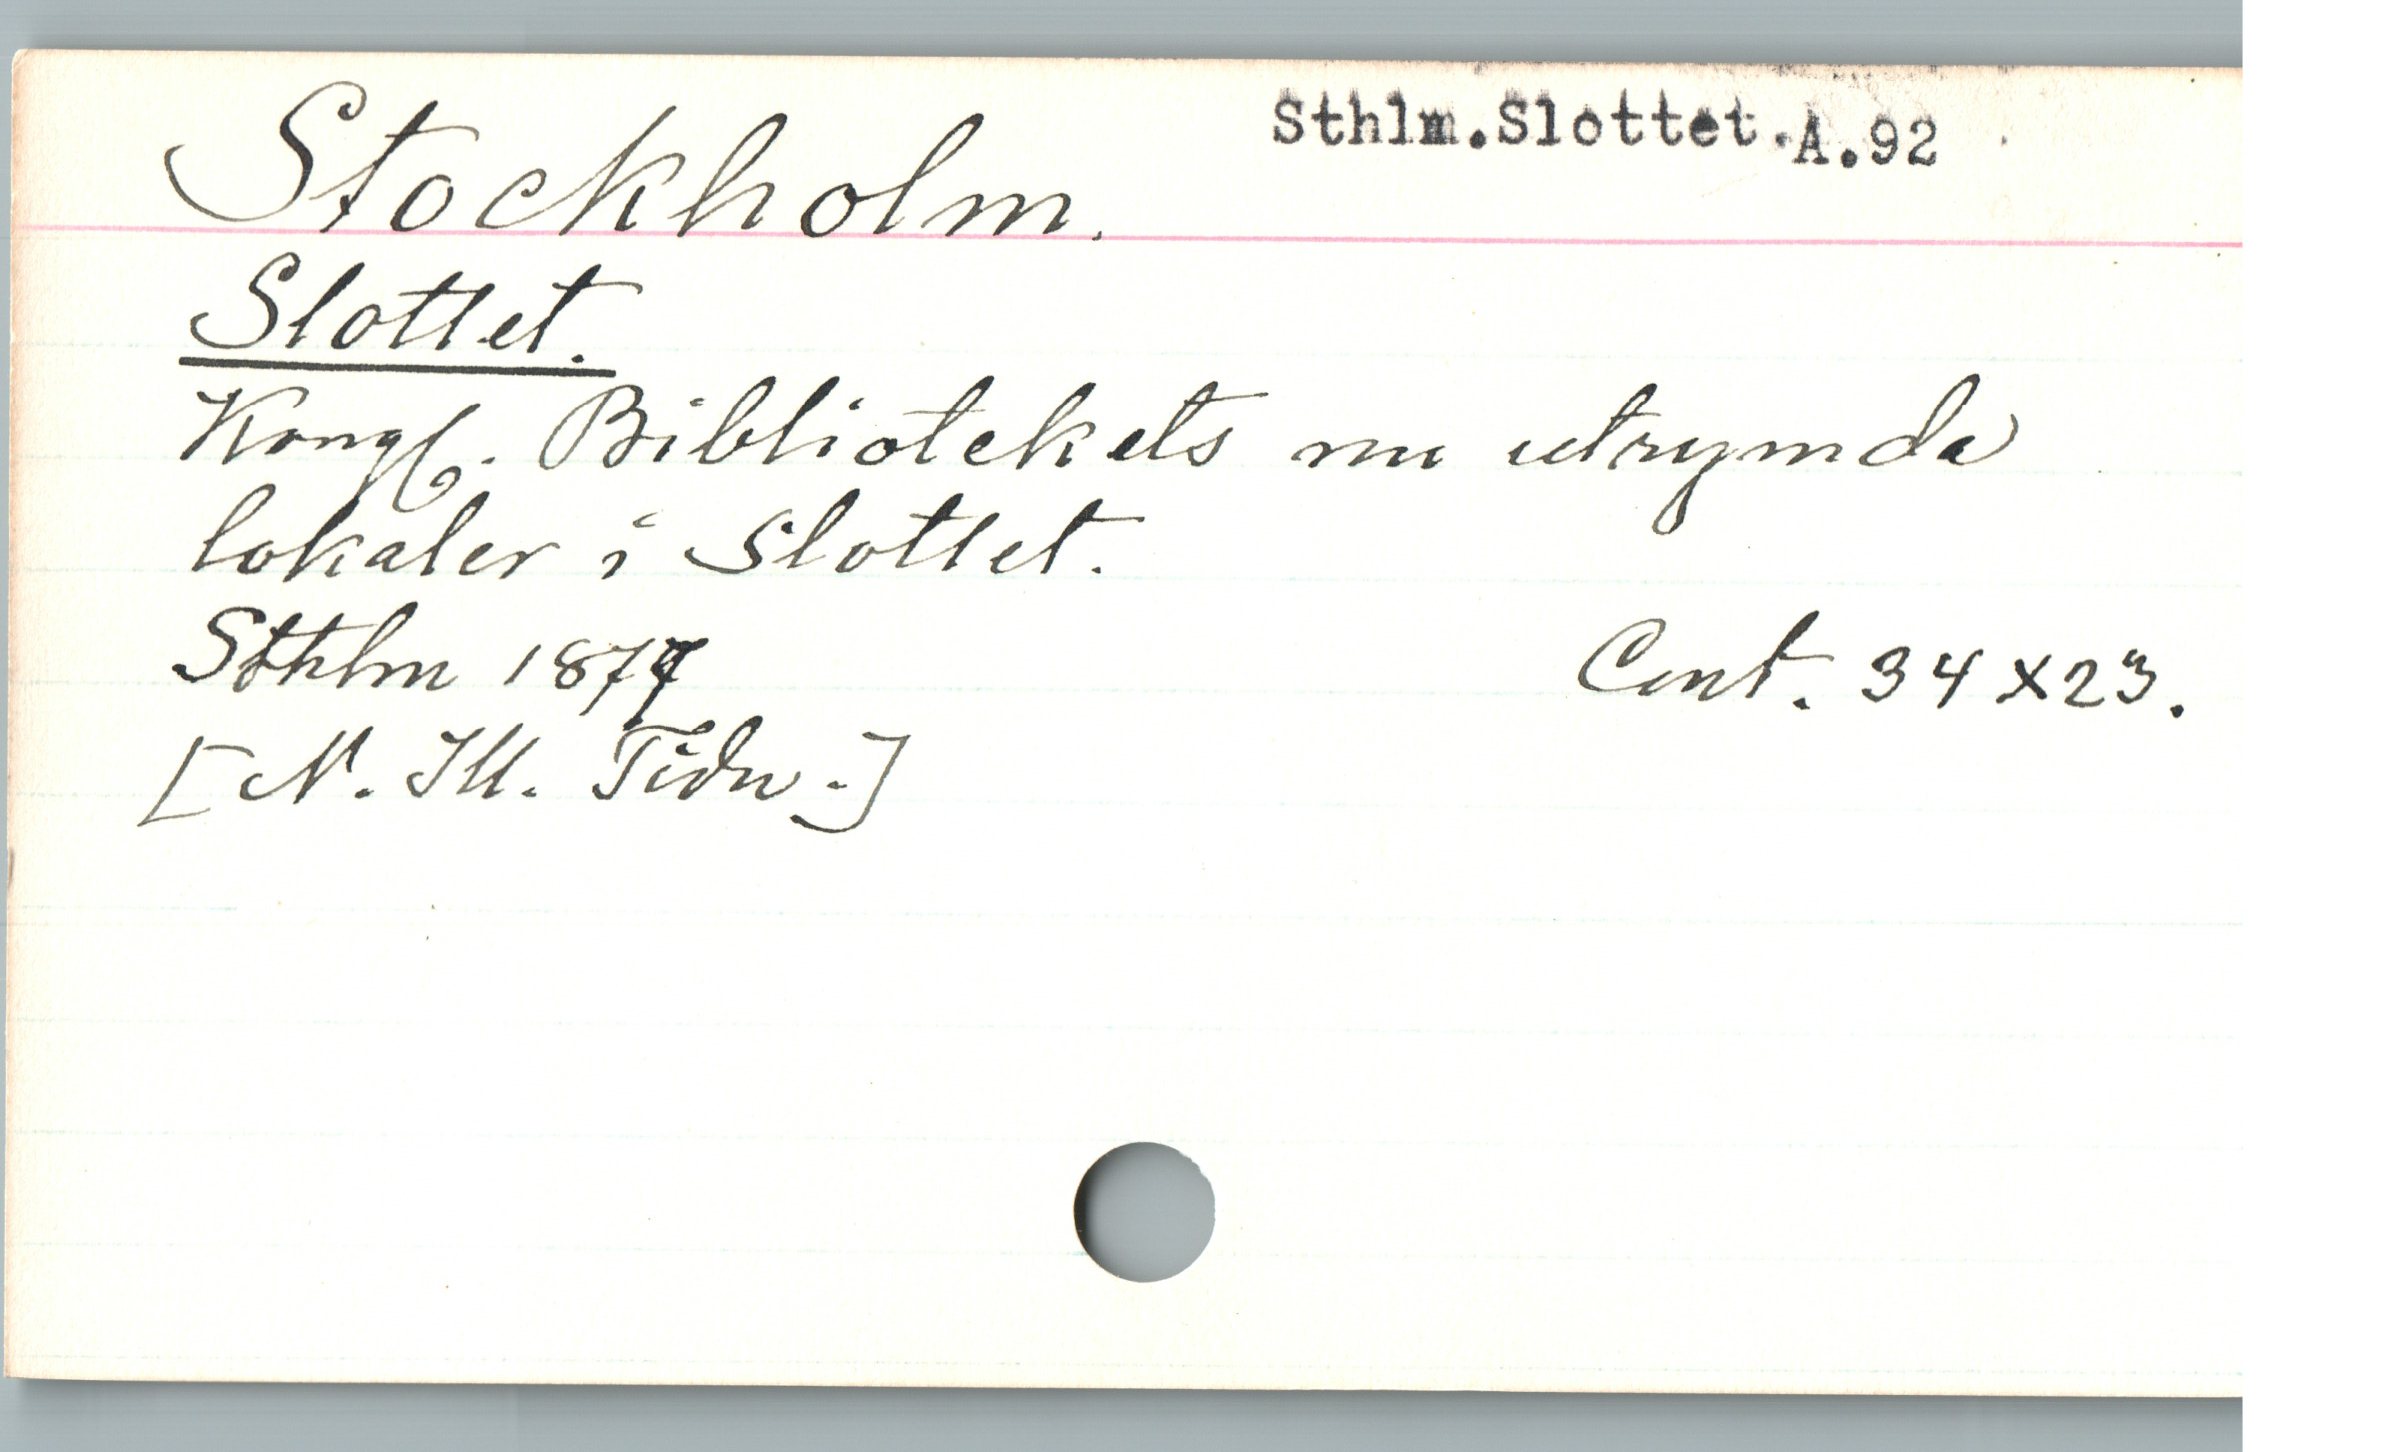 Sthlm.Slottet.A.92
Stockholm.
Slottet.
Kongl. Bibliotekets nu utrymda
lokaler i Slottet.
Sthlm 1877
Cent. 34 x 23.
[N. Ill. Tidn.]